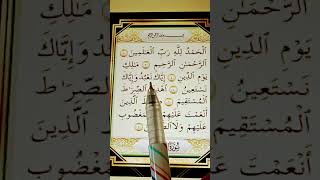 ٱلْحَمْدُ لِلَّهِ رَبِّ ٱلْعَٰلَمِينَ
ٱلرَّحْمَٰنِ ٱلرَّحِيمِ مَٰلِكِ
يَوْمِ ٱلدِّينِ إِيَّاكَ نَعْبُدُ وَإِيَّاكَ
نَسْتَعِينُ ٱلصِّرَٰطَ
ٱلْمُسْتَقِيمَ ٱلَّذِينَ
أَنْعَمْتَ عَلَيْهِمْ ٱلْمَغْضُوبِ
عَلَيْهِمْ وَلَا